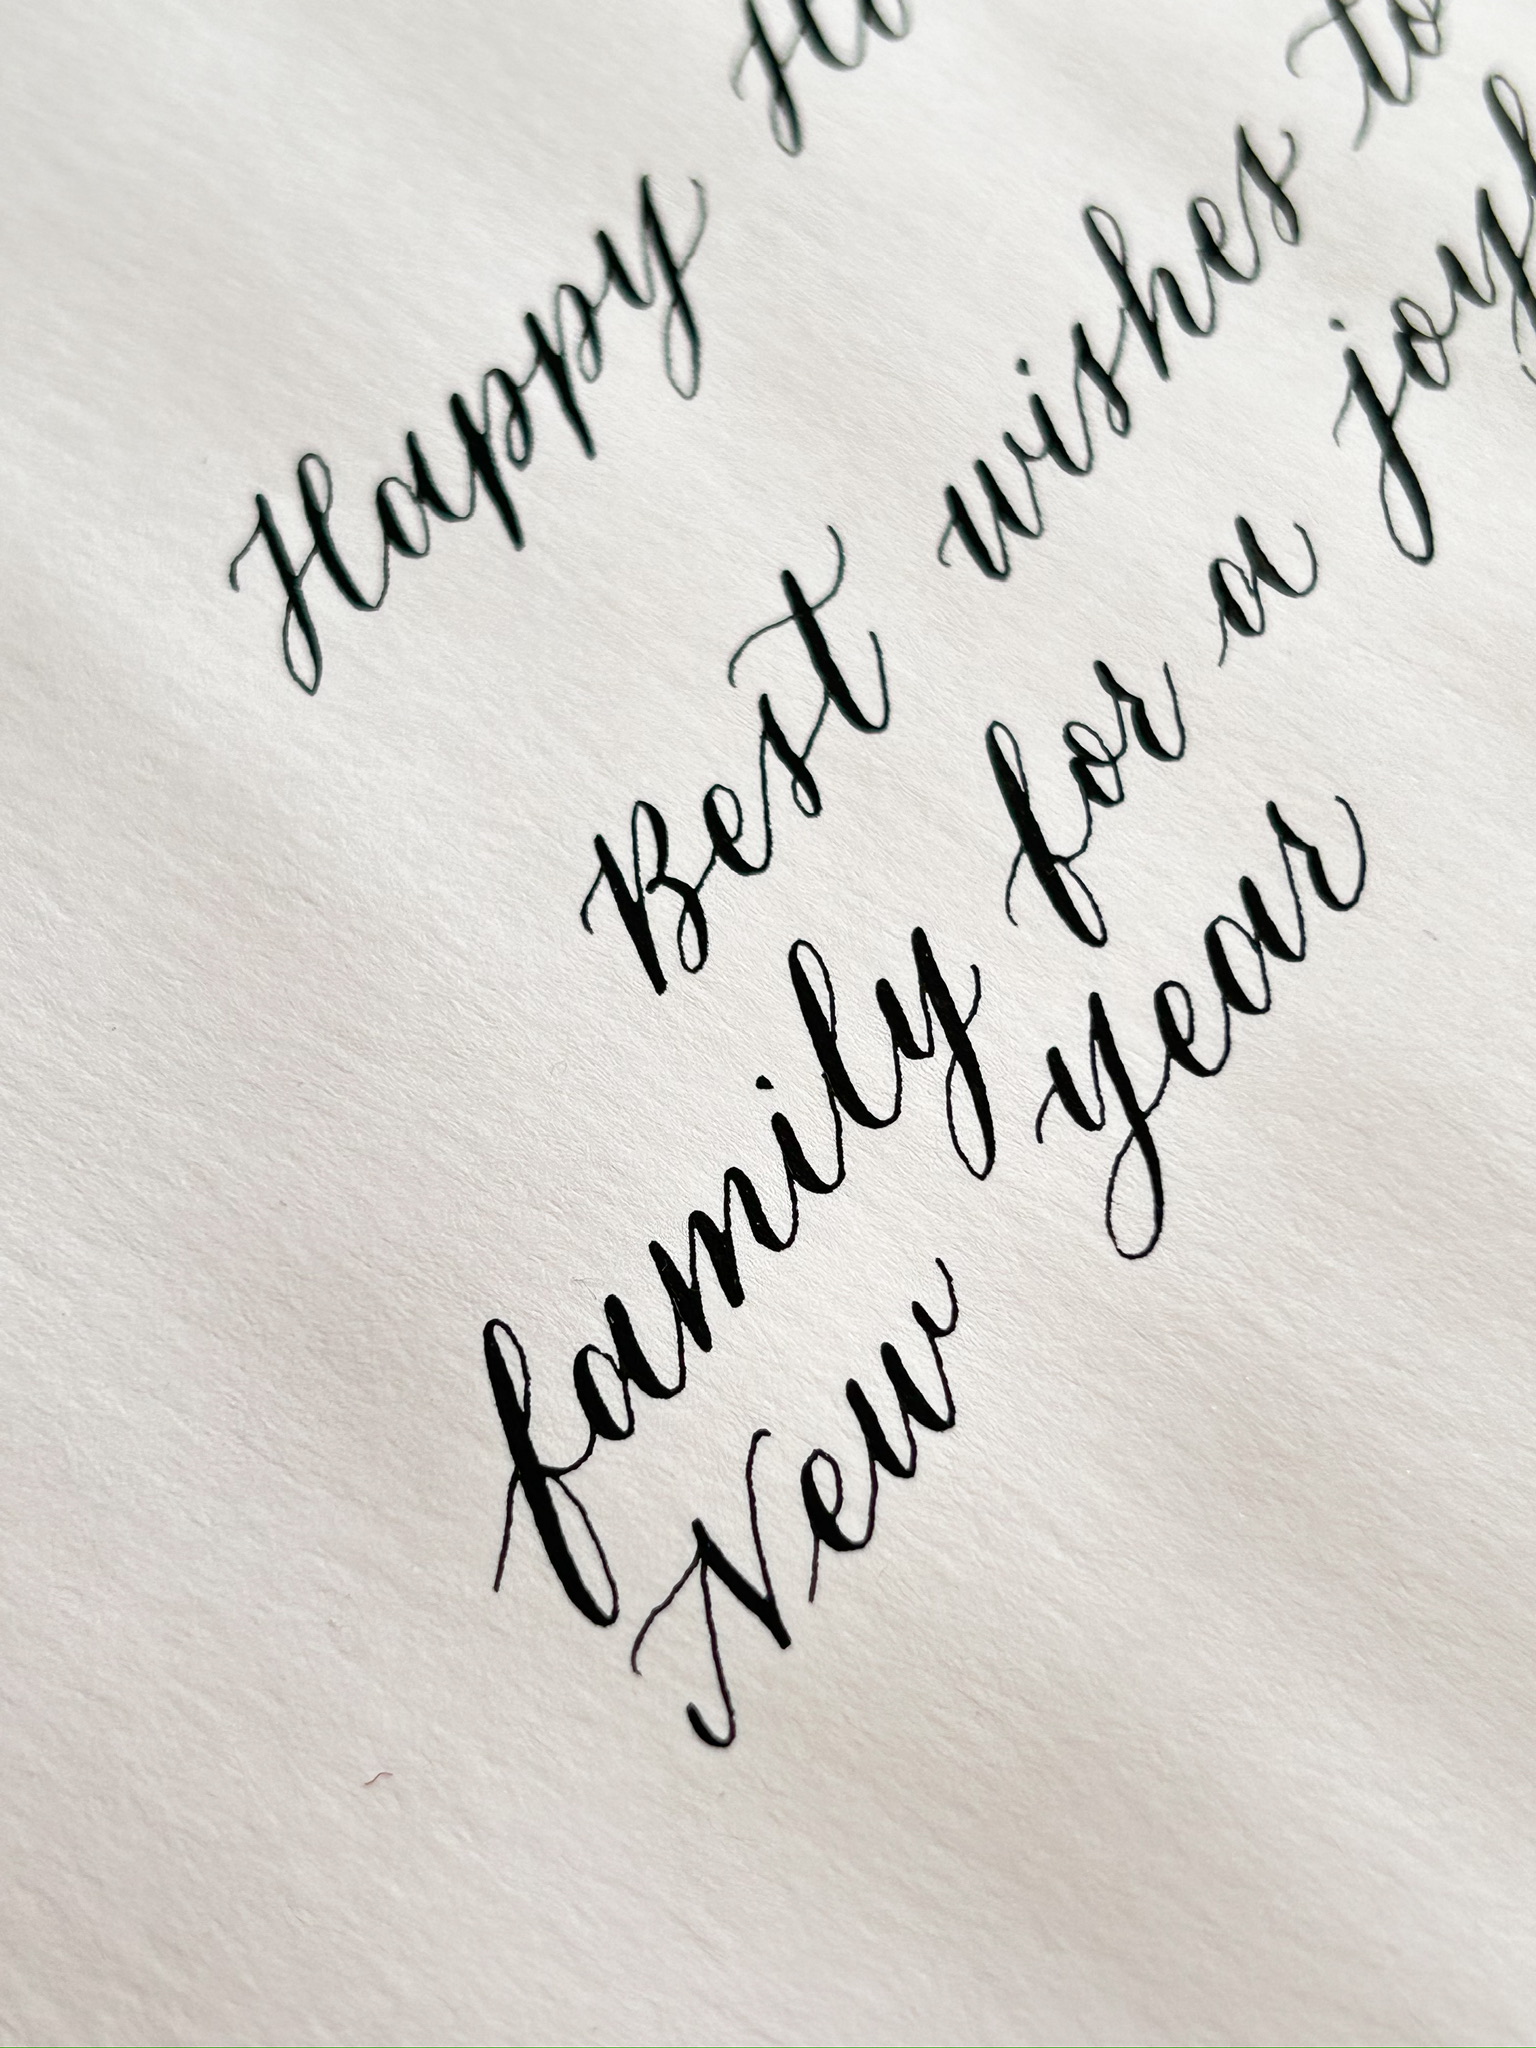 Happy
Best wishes to
family for a
New year